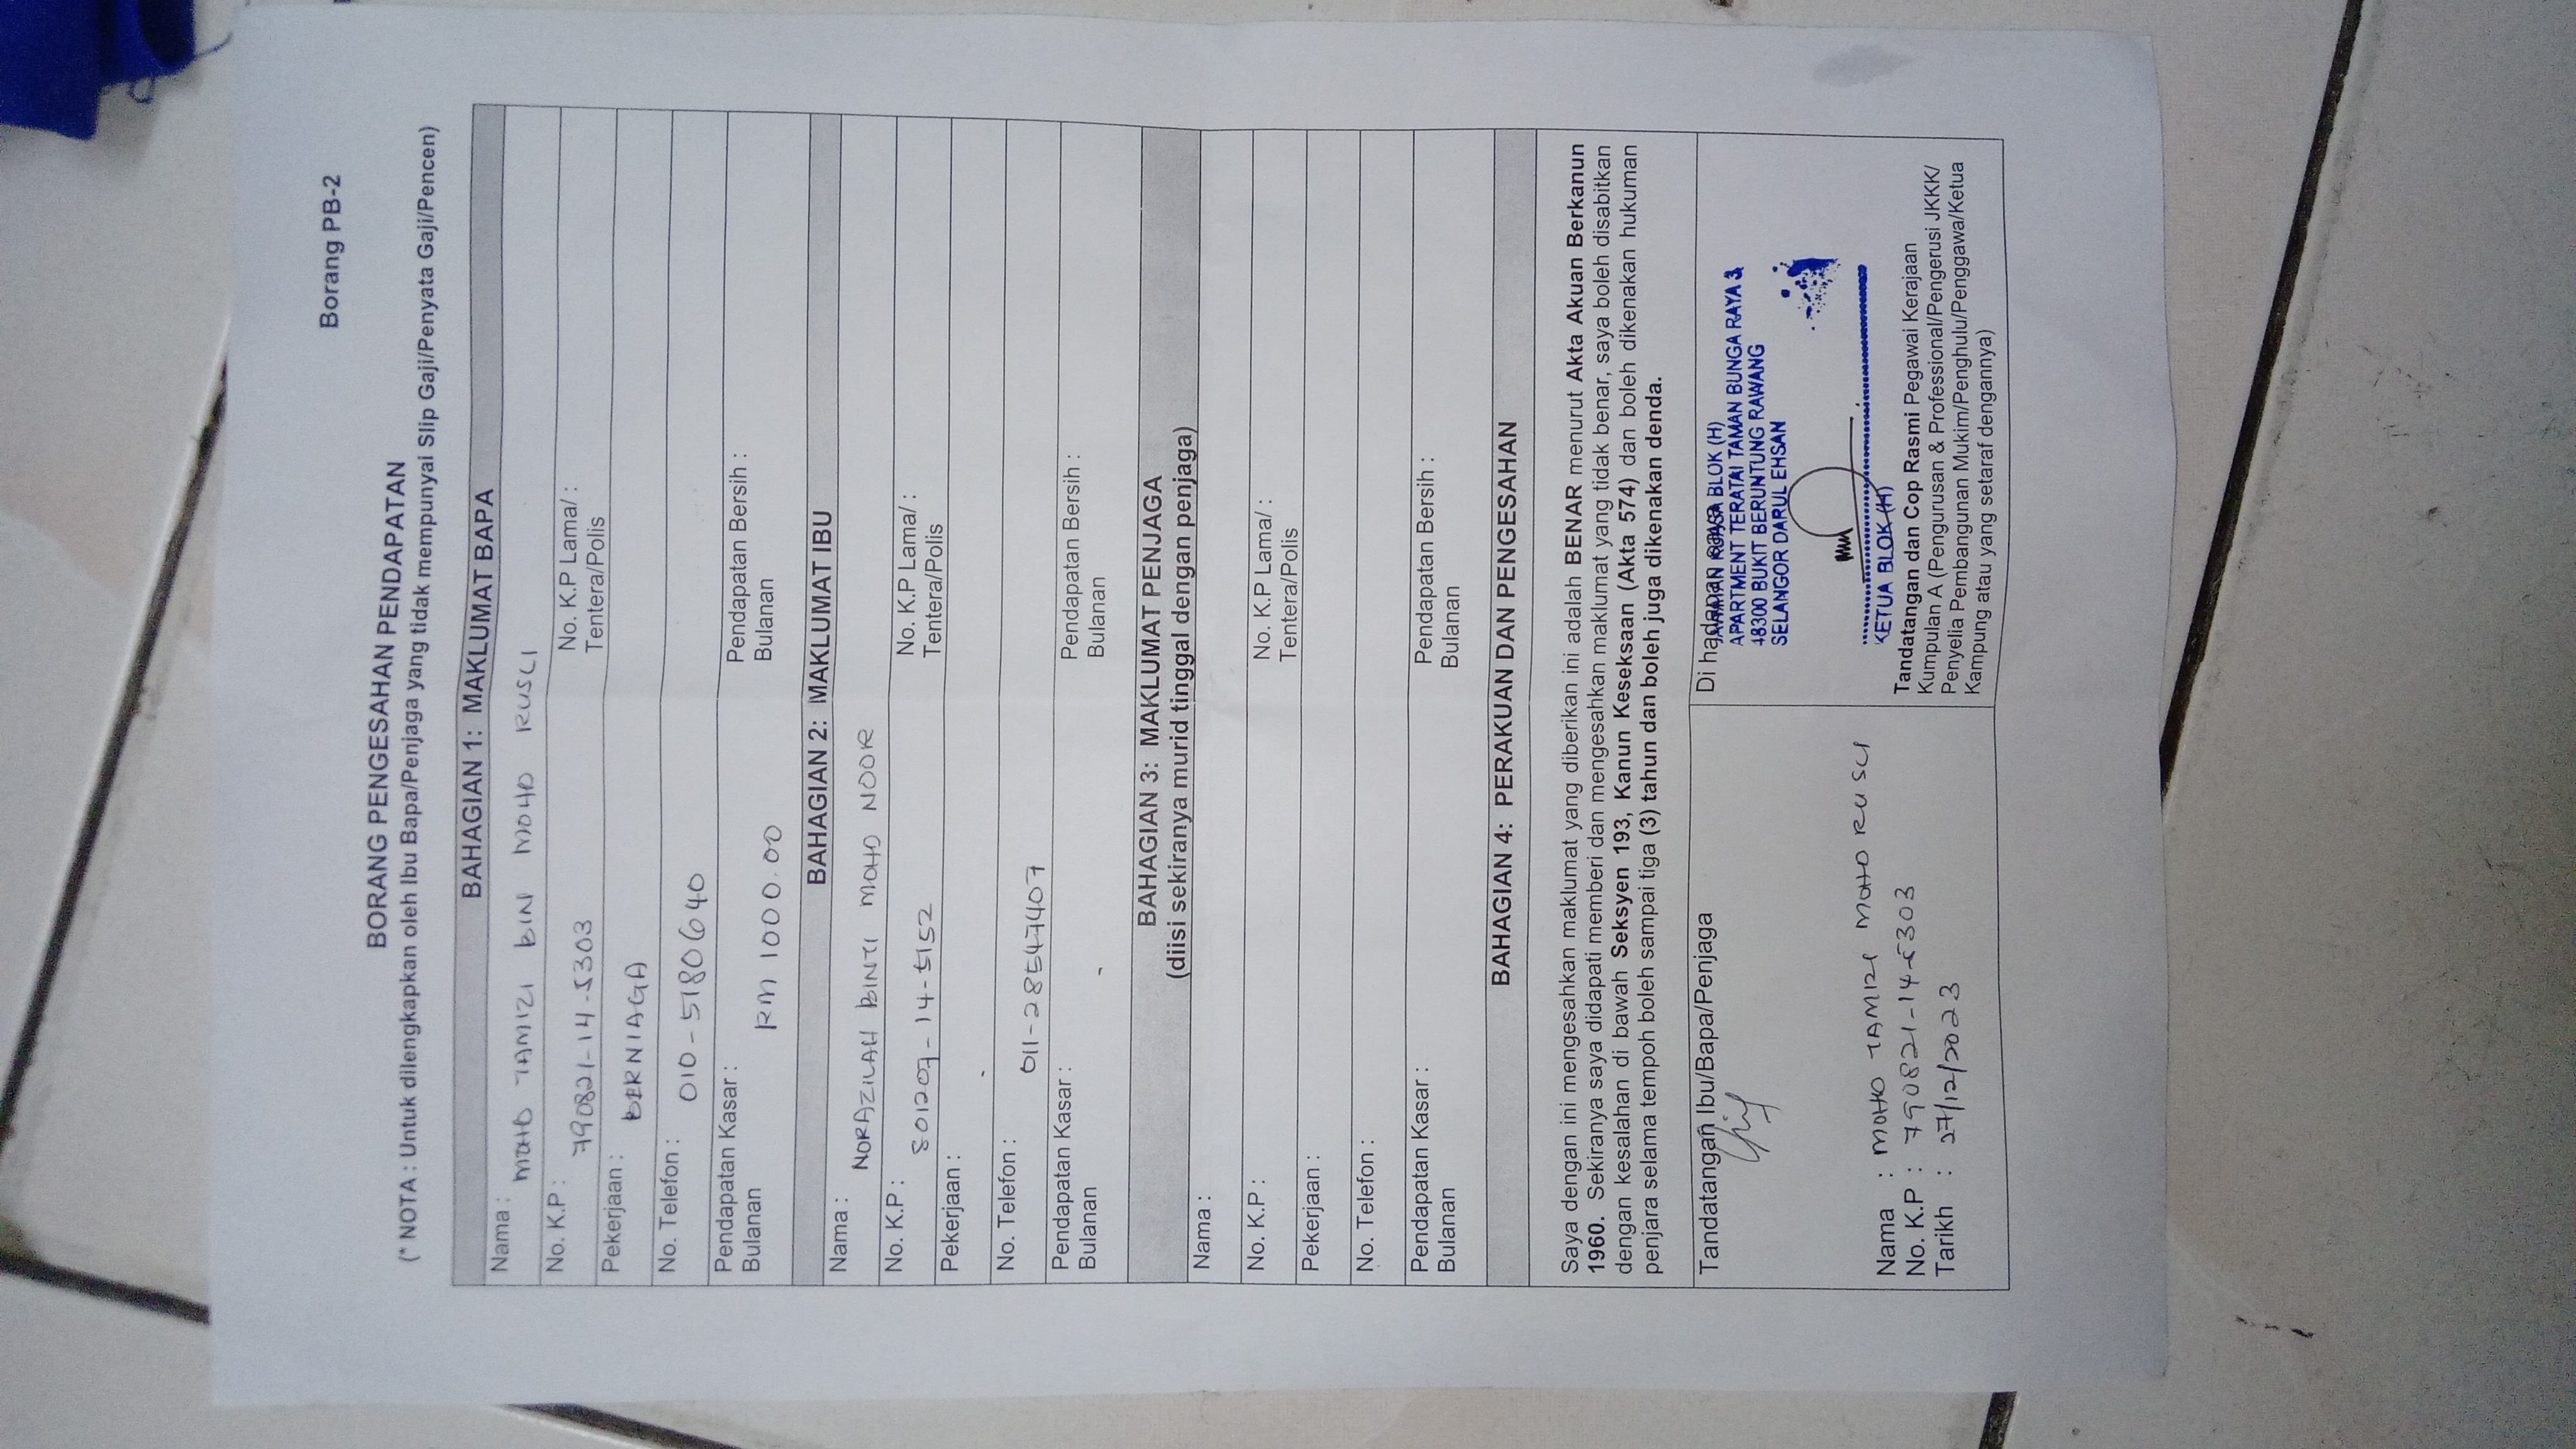 Borang PB-2
BORANG PENGESAHAN PENDAPATAN
(* NOTA : Untuk dilengkapkan oleh Ibu Bapa/Penjaga yang tidak mempunyai Slip Gaji/Penyata Gaji/Pencen)
BAHAGIAN 1: MAKLUMAT BAPA
Nama :
MOHD TAMIZI BIN MOHD RUSLI
No. K.P :
790821-14-5303
No. K.P Lama/ :
Tentera/Polis
Pekerjaan :
BERNIAGA
No. Telefon :
010-5180640
Pendapatan Kasar :
Bulanan
RM 1000.00
Pendapatan Bersih :
Bulanan
BAHAGIAN 2: MAKLUMAT IBU
Nama :
NORAZILAH BINTI MOHD NOOR
No. K.P :
801207-14-5152
No. K.P Lama/ :
Tentera/Polis
Pekerjaan :
-
No. Telefon :
011-28547407
Pendapatan Kasar :
Bulanan
-
Pendapatan Bersih :
Bulanan
BAHAGIAN 3: MAKLUMAT PENJAGA
(diisi sekiranya murid tinggal dengan penjaga)
Nama :
No. K.P :
No. K.P Lama/ :
Tentera/Polis
Pekerjaan :
No. Telefon :
Pendapatan Kasar :
Bulanan
Pendapatan Bersih :
Bulanan
BAHAGIAN 4: PERAKUAN DAN PENGESAHAN
Saya dengan ini mengesahkan maklumat yang diberikan ini adalah BENAR menurut Akta Akuan Berkanun
1960. Sekiranya saya didapati memberi dan mengesahkan maklumat yang tidak benar, saya boleh disabitkan
dengan kesalahan di bawah Seksyen 193, Kanun Keseksaan (Akta 574) dan boleh dikenakan hukuman
penjara selama tempoh boleh sampai tiga (3) tahun dan boleh juga dikenakan denda.
Tandatangan Ibu/Bapa/Penjaga
Nama : MOHD TAMIZI MOHD RUSLI
No. K.P : 790821-14-5303
Tarikh : 27/12/2023
Di hadapan saya
KUASA BLOK (H)
APARTMENT TERATAI TAMAN BUNGA RAYA 3
48300 BUKIT BERUNTUNG RAWANG
SELANGOR DARUL EHSAN
KETUA BLOK (H)
Tandatangan dan Cop Rasmi Pegawai Kerajaan
Kumpulan A (Pengurusan & Professional/Pengerusi JKKK/
Penyelia Pembangunan Mukim/Penghulu/Penggawa/Ketua
Kampung atau yang setaraf dengannya)